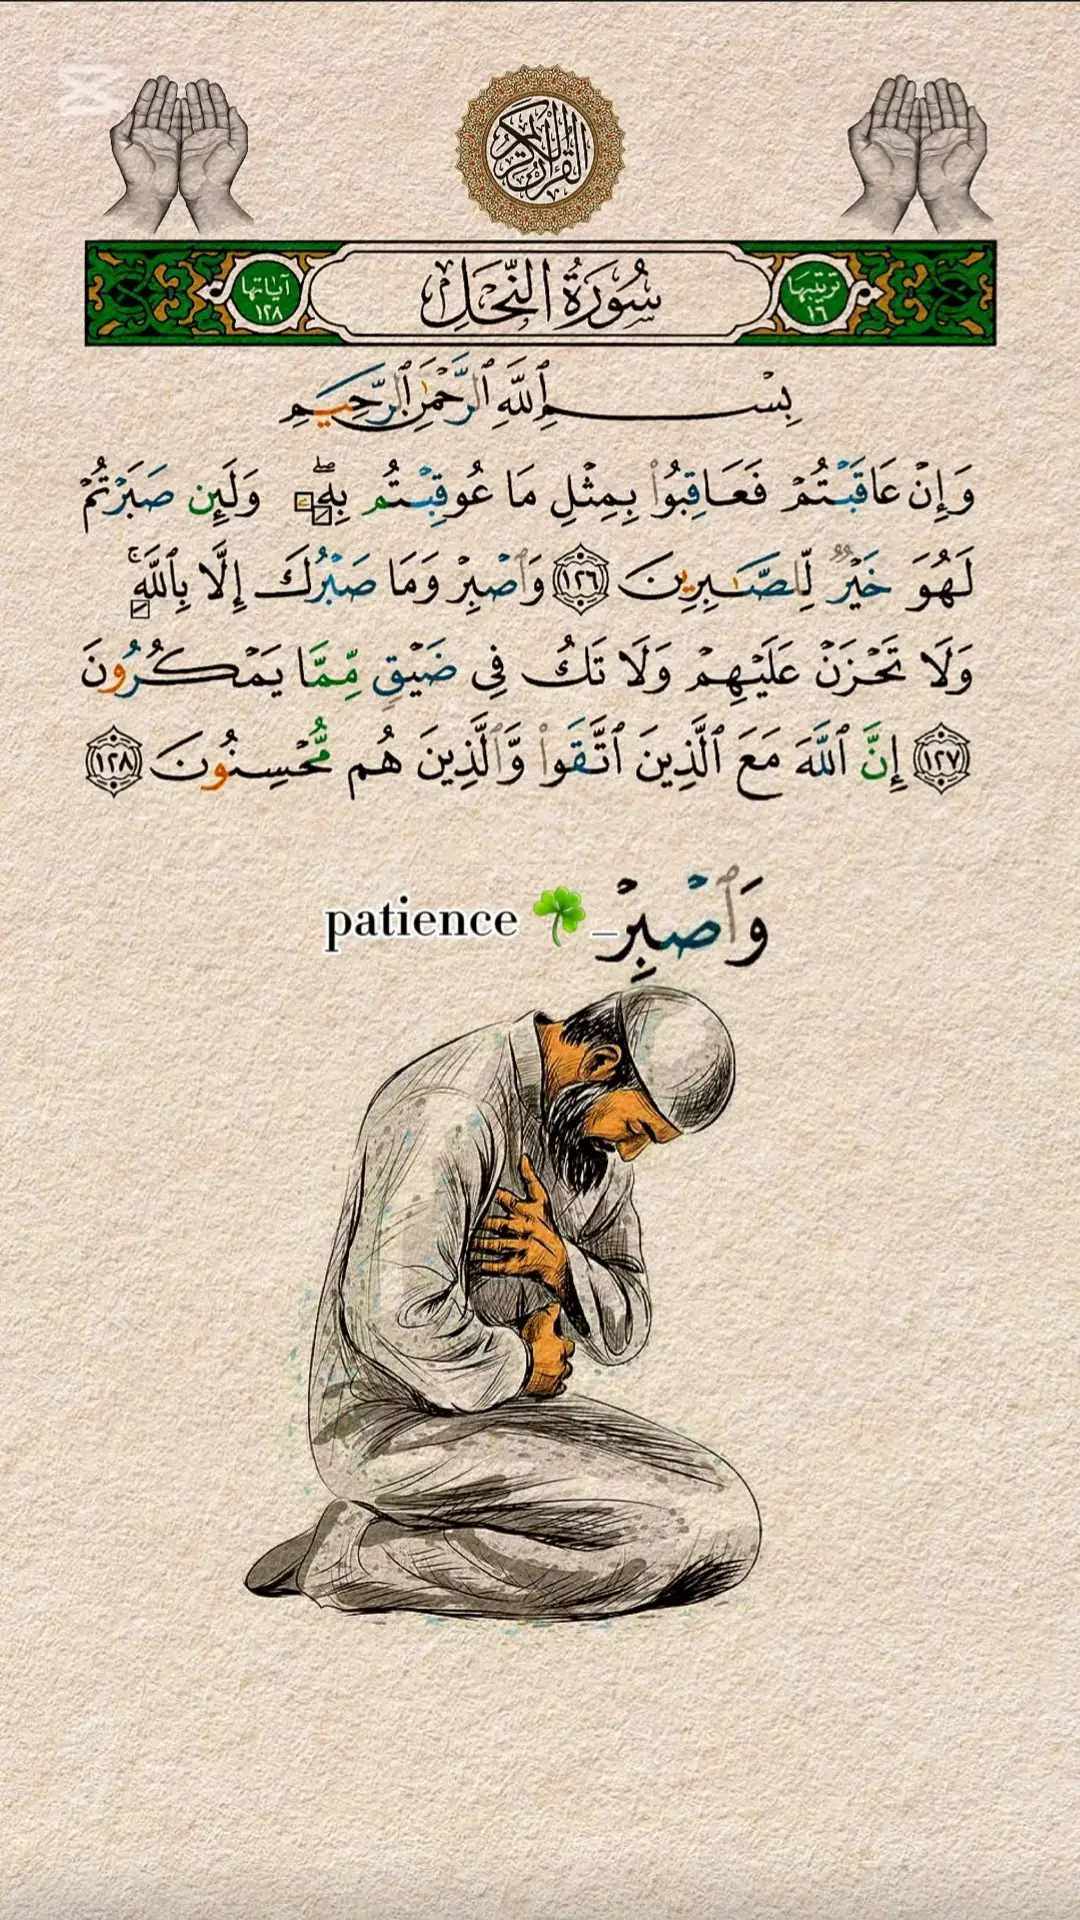 القرآن الكريم
سُورَةُ النَّحْلِ
ترتيبها ١٦
آياتها ١٢٨
بِسْمِ ٱللَّهِ ٱلرَّحْمَٰنِ ٱلرَّحِيمِ
وَإِنْ عَاقَبْتُمْ فَعَاقِبُوا۟ بِمِثْلِ مَا عُوقِبْتُم بِهِۦۖ وَلَئِن صَبَرْتُمْ
لَهُوَ خَيْرٌ لِّلصَّـٰبِرِينَ ١٢٦ وَٱصْبِرْ وَمَا صَبْرُكَ إِلَّا بِٱللَّهِۚ
وَلَا تَحْزَنْ عَلَيْهِمْ وَلَا تَكُ فِى ضَيْقٍ مِّمَّا يَمْكُرُونَ
١٢٧ إِنَّ ٱللَّهَ مَعَ ٱلَّذِينَ ٱتَّقَوا۟ وَّٱلَّذِينَ هُم مُّحْسِنُونَ ١٢٨
وَٱصْبِرْ_ patience